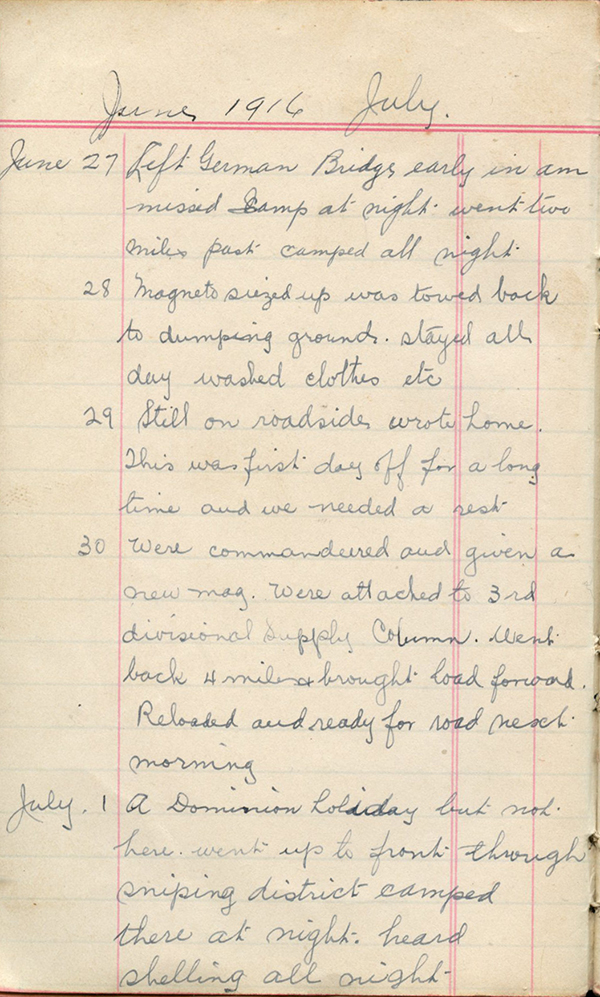 June 1916 July.
June 27 Left German Bridge, early in am
missed Camp at night. went two
miles past camped all night.
28 Magneto siezed up was towed back
to dumping grounds. stayed all
day washed clothes etc
29 Still on roadside, wrote home.
This was first day off for a long
time and we needed a rest.
30 Were commandeered and given a
new mag. Were attached to 3rd
divisional Supply Column. Went
back 4 miles & brought load forward.
Reloaded and ready for road next
morning
July. 1 A Dominion holiday but not
here. went up to front through
sniping district camped
there at night. heard
shelling all night